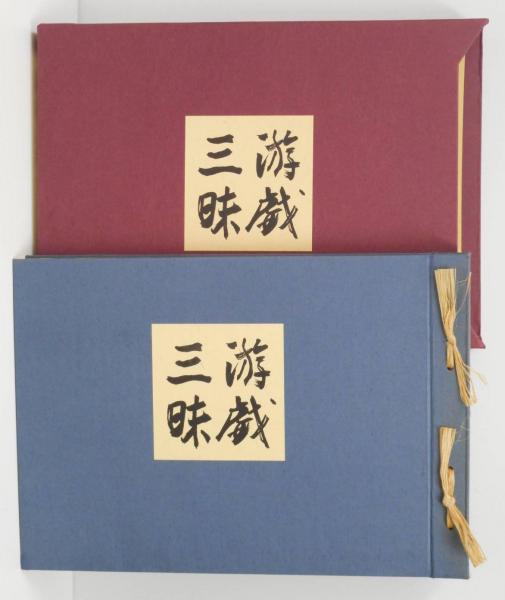 游戯
三昧
游戯
三昧